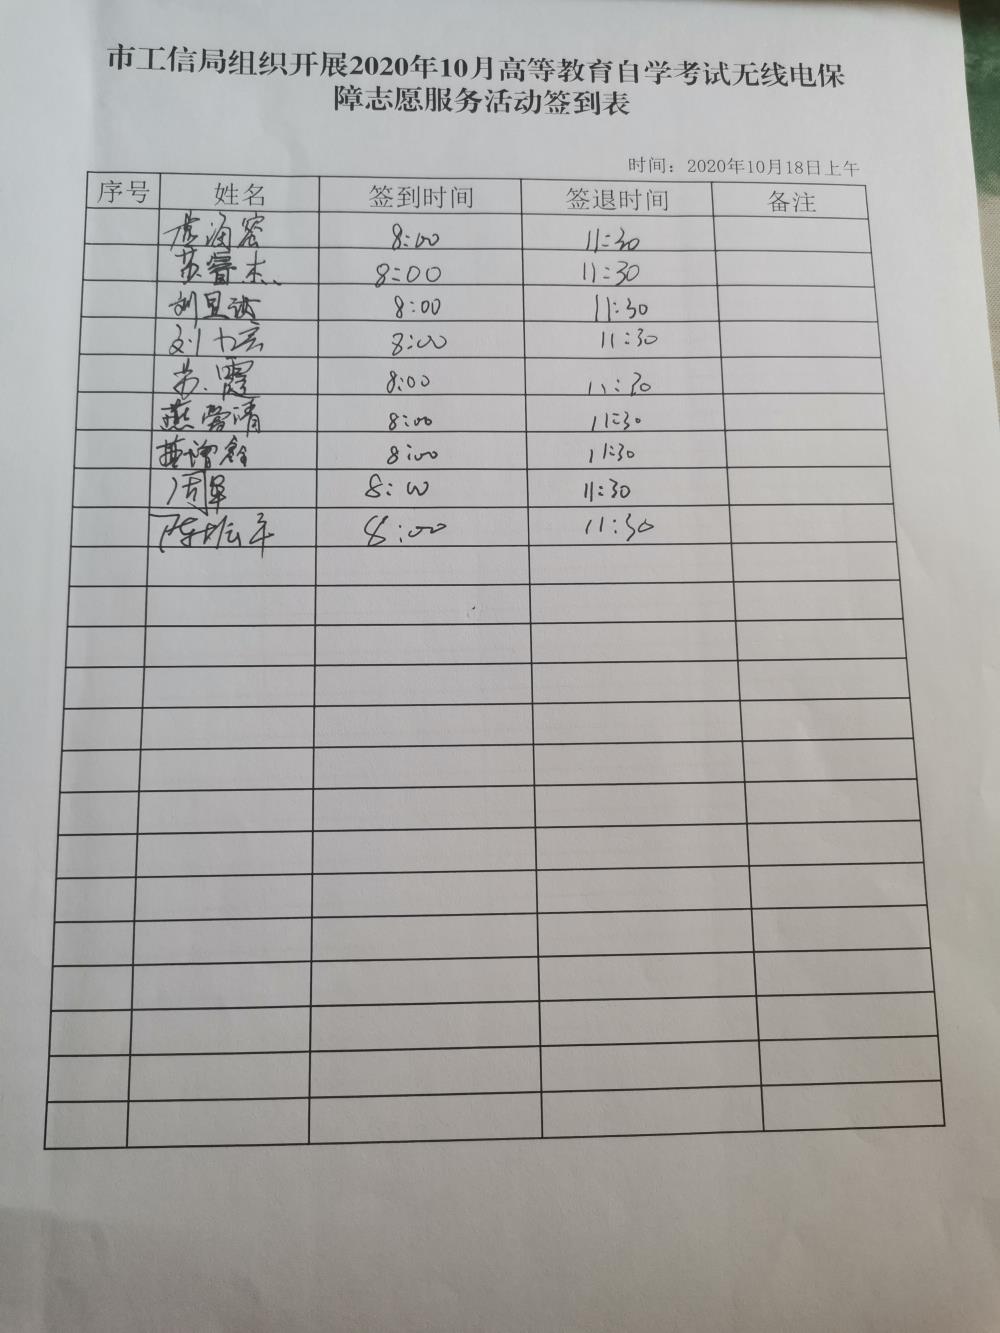 市工信局组织开展2020年10月高等教育自学考试无线电保
障志愿服务活动签到表
时间：2020年10月18日上午
序号 姓名 签到时间 签退时间 备注
8:00 11:30
苏睿杰 8:00 11:30
8:00 11:30
刘 8:00 11:30
苏霞 8:00 11:30
燕雪清 8:00 11:30
8:00 11:30
周军 8:00 11:30
陈 8:00 11:30